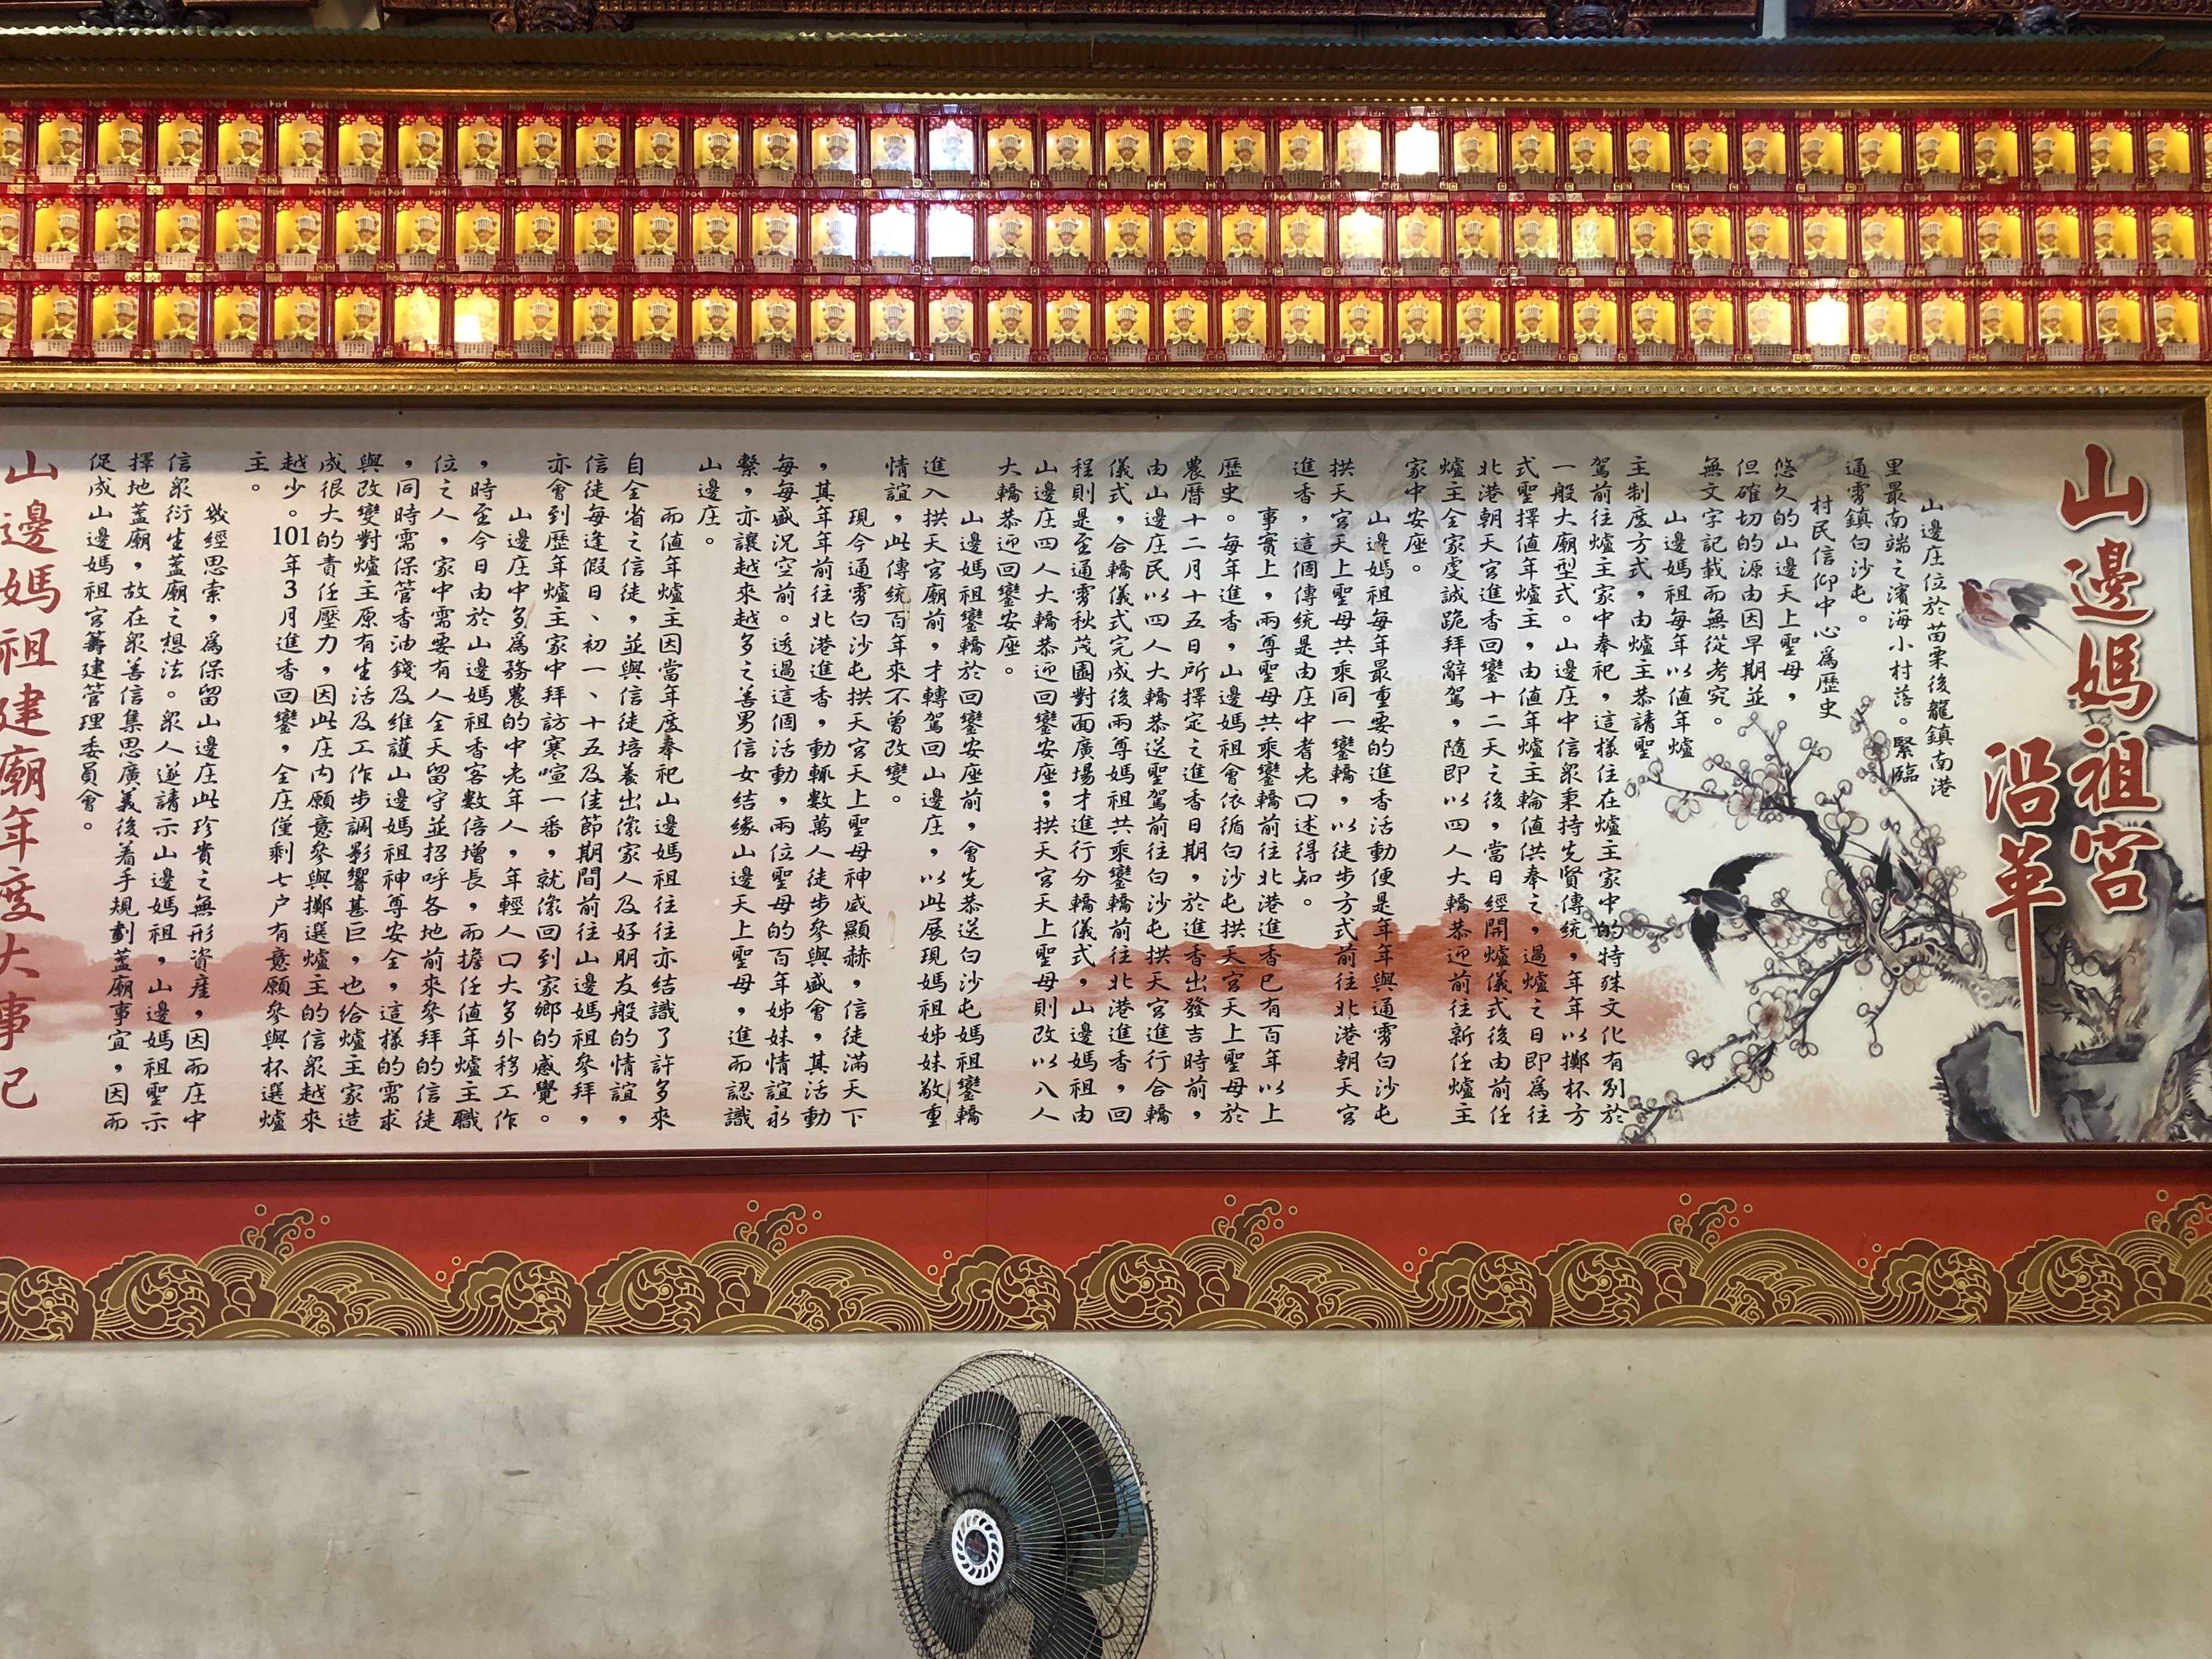 山邊媽祖宮
沿革
山邊庄位於苗栗後龍鎮南港
里最南端之濱海小村落。緊臨
通霄鎮白沙屯。
村民信仰中心為歷史
悠久的山邊天上聖母，
但確切的源由因早期並
無文字記載而無從考究。
山邊媽祖每年以值年爐
主制度方式，由爐主恭請聖
駕前往爐主家中奉祀，這樣住在爐主家中的特殊文化有別於
一般大廟型式。山邊庄中信眾秉持先賢傳統，年年以擲杯方
式聖擇值年爐主，由值年爐主輪值供奉之，過爐之日即為往
北港朝天宮進香回鑾十二天之後，當日經開爐儀式後由前任
爐主全家虔誠跪拜辭駕，隨即以四人大轎恭迎前往新任爐主
家中安座。
山邊媽祖每年最重要的進香活動便是年年與通霄白沙屯
拱天宮天上聖母共乘同一鑾轎，以徒步方式前往北港朝天宮
進香，這個傳統是由庄中耆老口述得知。
事實上，兩尊聖母共乘鑾轎前往北港進香已有百年以上
歷史。每年進香，山邊媽祖會依循白沙屯拱天宮天上聖母於
農曆十二月十五日所擇定之進香日期，於進香出發吉時前，
由山邊庄民以四人大轎恭送聖駕前往白沙屯拱天宮進行合轎
儀式，合轎儀式完成後兩尊媽祖共乘鑾轎前往北港進香，回
程則是至通霄秋茂園對面廣場才進行分轎儀式，山邊媽祖由
山邊庄四人大轎恭迎回鑾安座；拱天宮天上聖母則改以八人
大轎恭迎回鑾安座。
山邊媽祖鑾轎於回鑾安座前，會先恭送白沙屯媽祖鑾轎
進入拱天宮廟前，才轉駕回山邊庄，以此展現媽祖姊妹敬重
情誼，此傳統百年來不曾改變。
現今通霄白沙屯拱天宮天上聖母神威顯赫，信徒滿天下
，其年年前往北港進香，動輒數萬人徒步參與盛會，其活動
每每盛況空前。透過這個活動，兩位聖母的百年姊妹情誼永
繫，亦讓越來越多之善男信女結緣山邊天上聖母，進而認識
山邊庄。
而值年爐主因當年度奉祀山邊媽祖往往亦結識了許多來
自全省之信徒，並與信徒培養出像家人及好朋友般的情誼，
信徒每逢假日、初一、十五及佳節期間前往山邊媽祖參拜，
亦會到歷年爐主家中拜訪寒喧一番，就像回到家鄉的感覺。
山邊庄中多為務農的中老年人，年輕人口大多外移工作
，時至今日由於山邊媽祖香客數倍增長，而擔任值年爐主職
位之人，家中需要有人全天留守並招呼各地前來參拜的信徒
，同時需保管香油錢及維護山邊媽祖神尊安全，這樣的需求
與改變對爐主原有生活及工作步調影響甚巨，也給爐主家造
成很大的責任壓力，因此庄內願意參與擲選爐主的信眾越來
越少。101年3月進香回鑾，全庄僅剩七户有意願參與杯選爐
主。
幾經思索，為保留山邊庄此珍貴之無形資產，因而庄中
信眾衍生蓋廟之想法。眾人遂請示山邊媽祖，山邊媽祖聖示
擇地蓋廟，故在眾善信集思廣義後著手規劃蓋廟事宜，因而
促成山邊媽祖宮籌建管理委員會。
山邊媽祖建廟年度大事記